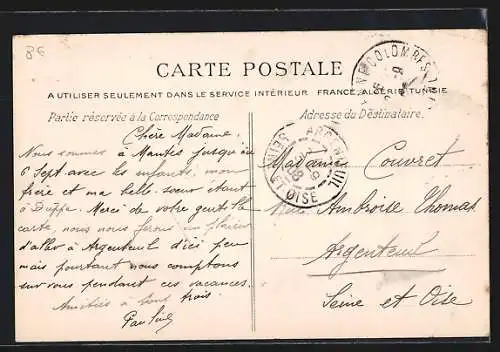 86
CARTE POSTALE
A UTILISER SEULEMENT DANS LE SERVICE INTÉRIEUR FRANCE, ALGÉRIE, TUNISIE
Partie réservée à la Correspondance
Adresse du Destinataire.
COLOMBES
ARGENTEUIL
SEINE ET OISE
Chère Madame.
Nous sommes à Mantes jusqu'au
6 Sept. avec les enfants, mon
frère et ma belle sœur étant
à Dieppe. Merci de votre gentille
carte, nous nous ferons un plaisir
d'aller à Argenteuil d'ici peu
mais pourtant nous comptons
sur vous pendant ces vacances.
Amitiés à tous trois.
Pauline
Madame Couvret
Ambroise Thomas
Argenteuil
Seine et Oise